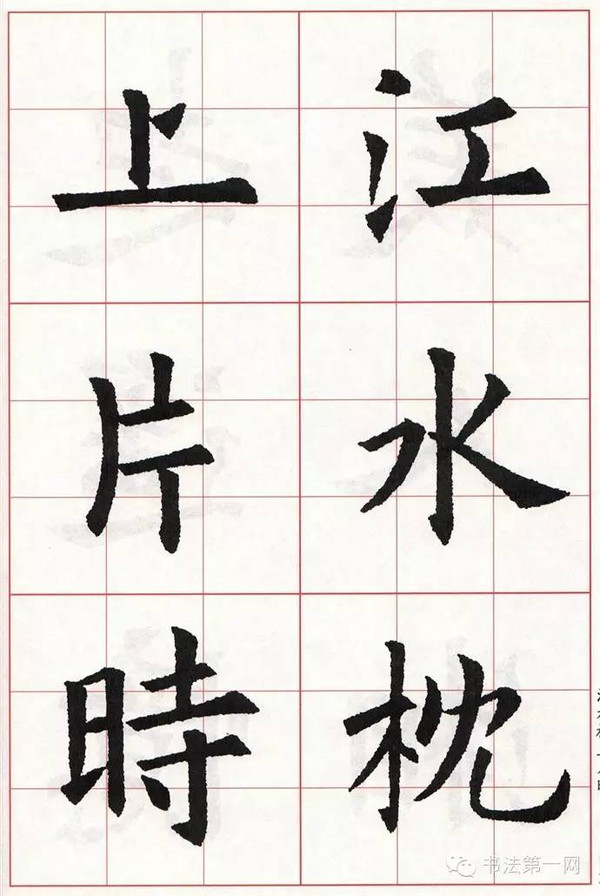 江水枕
上片時
书法第一网